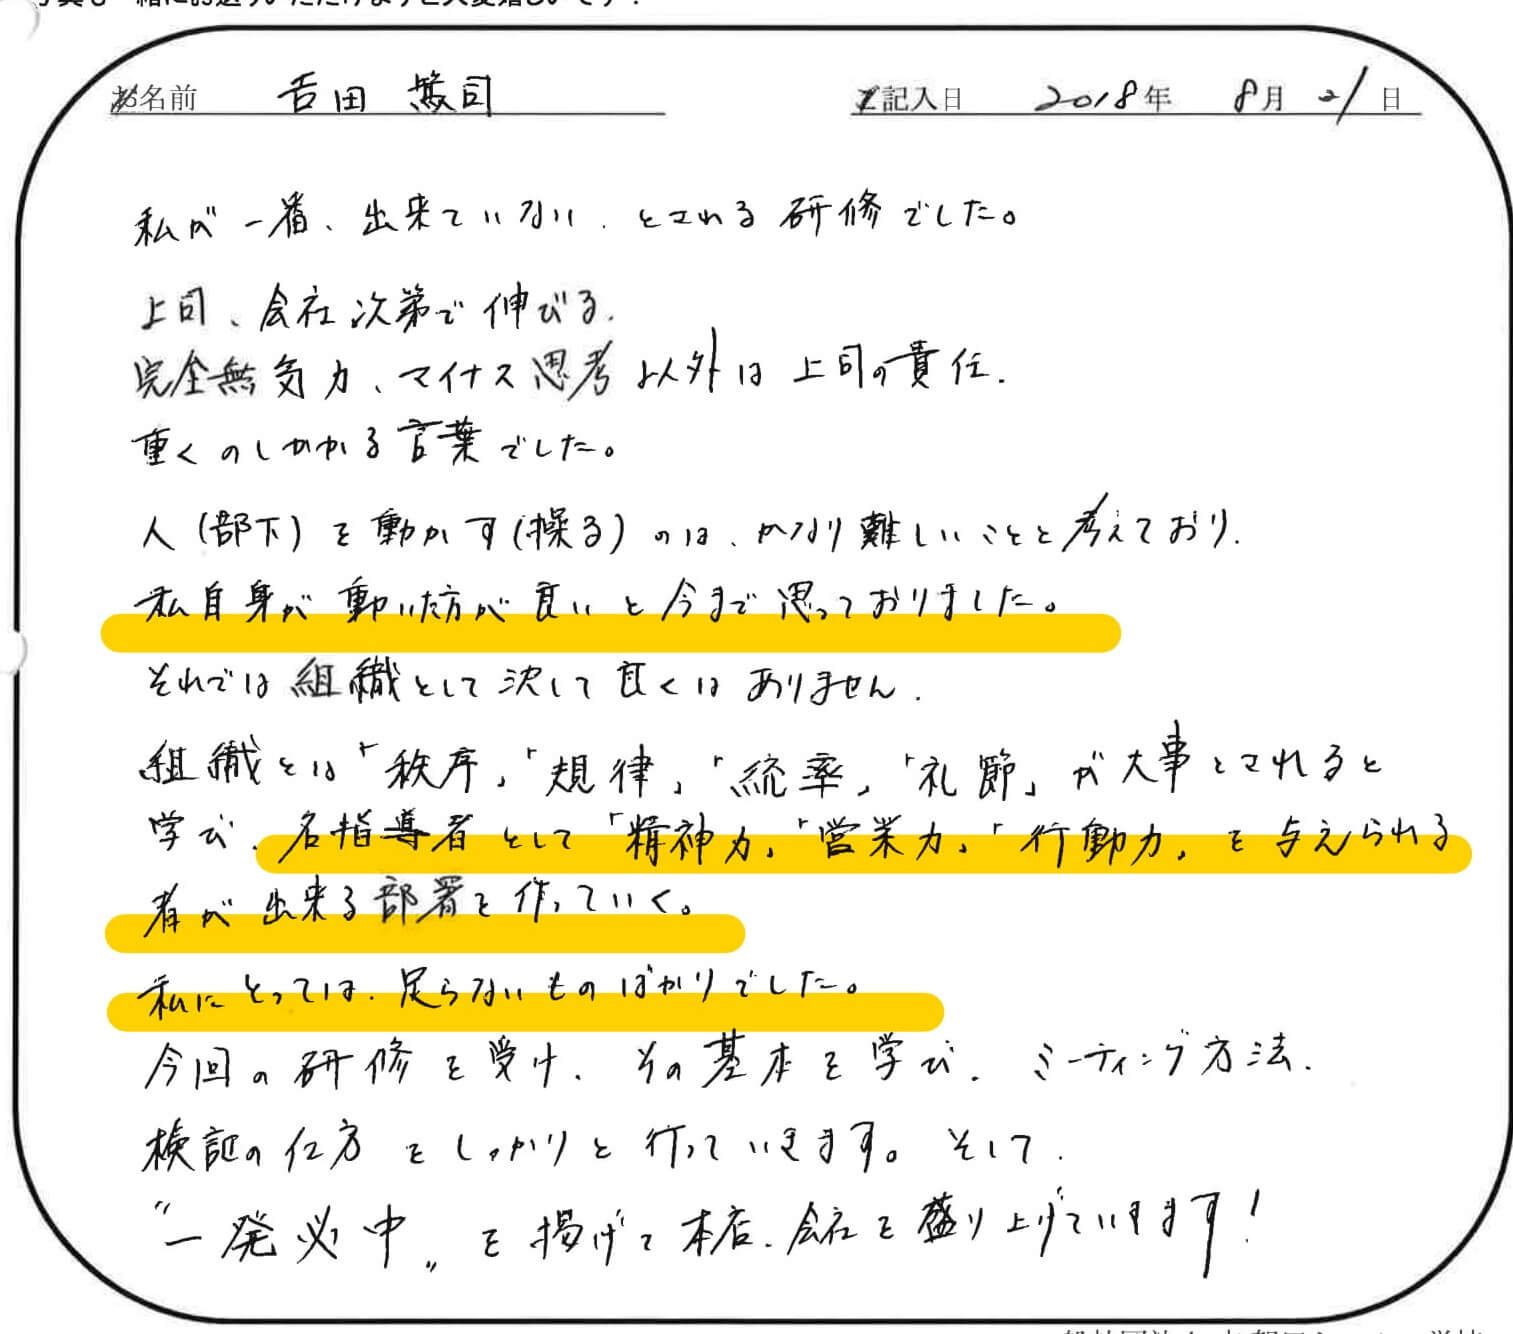 お名前 吉田 篤司 ご記入日 2018年 8月 21日
私が一番、出来ていない、とされる研修でした。
上司、会社次第で伸びる、
完全無気力、マイナス思考以外は上司の責任、
重くのしかかる言葉でした。
人(部下)を動かす(操る)のは、かなり難しいことと考えており、
私自身が動いた方が良いと今まで思っておりました。
それでは組織として決して良くはありません、
組織とは「秩序」「規律」「統率」「礼節」が大事とされると
学び、名指導者として「精神力」「営業力」「行動力」を与えられる
者が出来る部署を作っていく。
私にとっては、足らないものばかりでした。
今回の研修を受け、その基本を学び、ミーティング方法、
検証の仕方をしっかりと行っていきます。そして、
“一発必中„を掲げて本店、会社を盛り上げていきます！